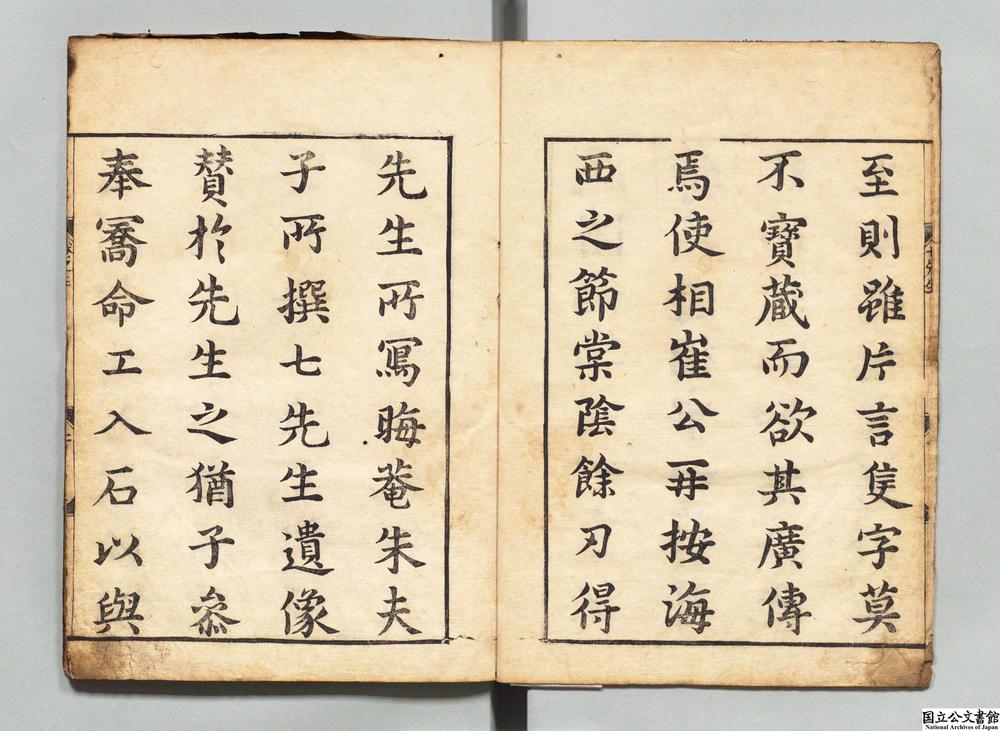 至則雖片言隻字莫
不寶蔵而欲其廣傳
焉使相崔公再按海
西之節棠陰餘刃得
先生所寫晦菴朱夫
子所撰七先生遺像
賛於先生之猶子叅
奉寯命工入石以與
国立公文書館
National Archives of Japan